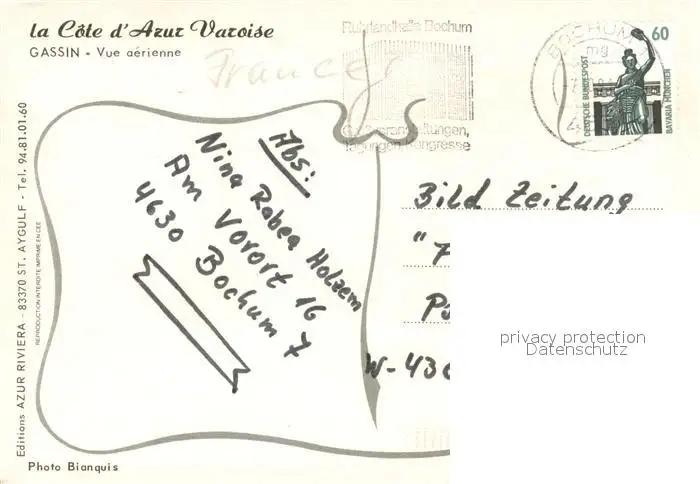 la Côte d'Azur Varoise
GASSIN - Vue aérienne
France
Ruhrlandhalle Bochum
BOCHUM
mg
60
DEUTSCHE BUNDESPOST
BAVARIA MÜNCHEN
Tagungen, Kongresse
Abs:
Nina Rabea Holzem
Am Vorort 16
4630 Bochum 7
Bild Zeitung
W-43
privacy protection
Datenschutz
Editions AZUR RIVIERA - 83370 ST. AYGULF - Tel. 94.81.01.60
REPRODUCTION INTERDITE IMPRIME EN CEE
Photo Bianquis